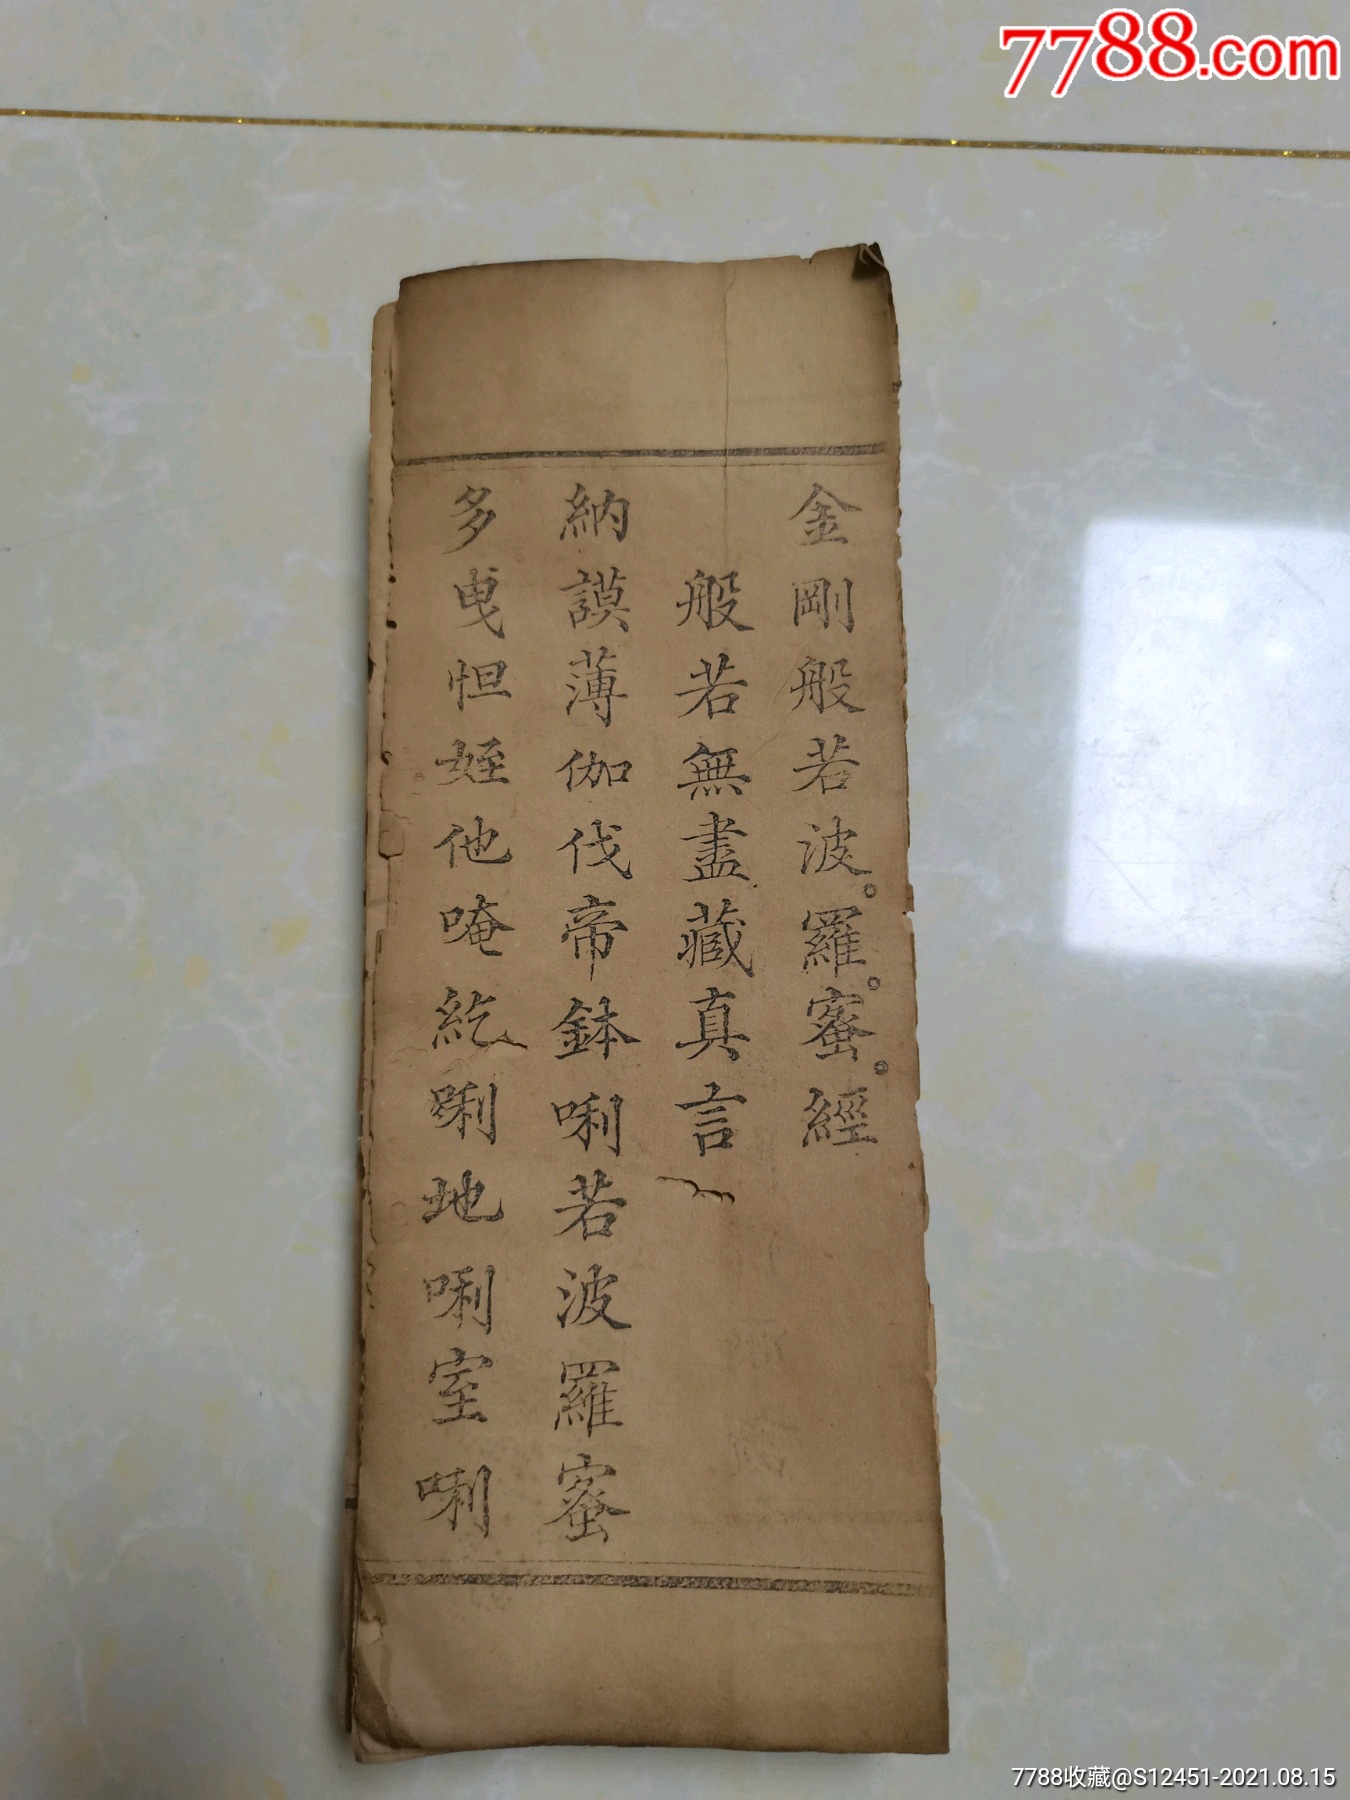 7788.com
金剛般若波。羅。蜜。經
般若無盡藏真言
納謨薄伽伐帝鉢唎若波羅蜜
多曳怛姪他唵紇唎地唎室唎
7788收藏@S12451-2021.08.15